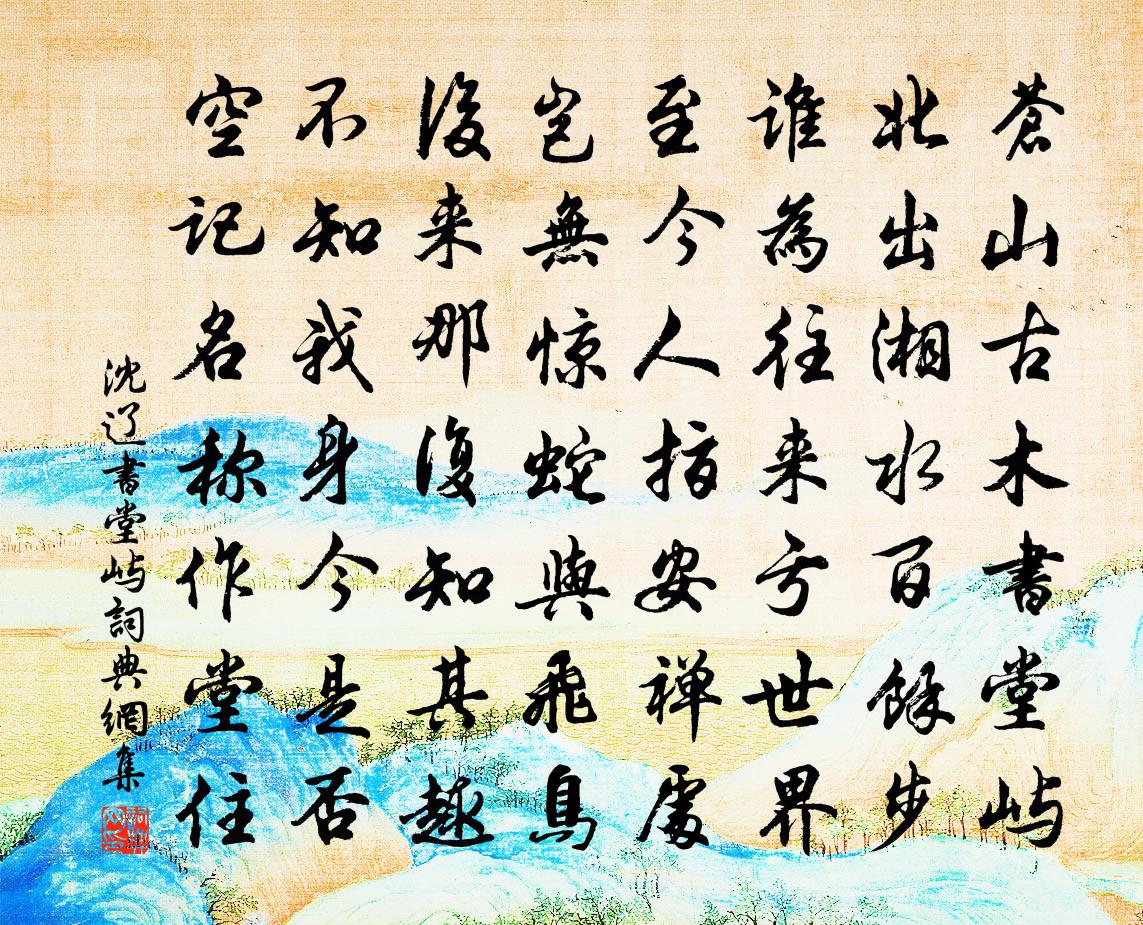 蒼山古木書堂屿
北出湘水百餘步
誰為往来亏世界
至今人指安禅處
岂無惊蛇與飛鳥
後来那復知其趣
不知我身今是否
空记名称作堂住
沈辽書堂屿詞典網集